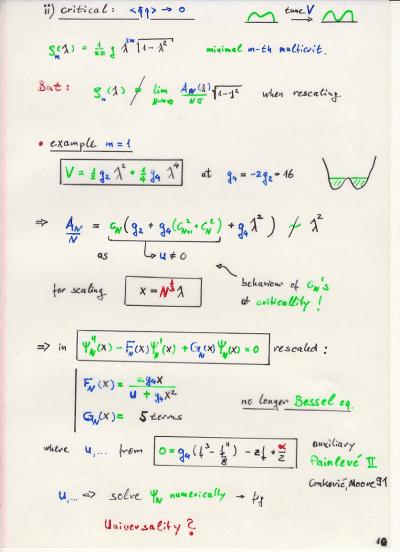 ii) critical: <q̄q> → 0
tune V
ρₘ(λ) = 1/2π g λ²ᵐ √1-λ² minimal m-th multicrit.
But: ρₘ(λ) ≠ lim N→∞ A_N(λ)/Nπ √1-λ² when rescaling
• example m=1
V = ½g₂ λ² + ¼g₄ λ⁴ at g₄ = -2g₂ = 16
⇒ A_N/N = c_N(g₂ + g₄(c²_N+1 + c²_N) + g₄λ²) ≁ λ²
as ↳ u ≠ 0
behaviour of c_N's
for scaling x = N^⅓ λ at criticallity!
⇒ in Ψ''_N(x) - F_N(x)Ψ'_N(x) + G_N(x)Ψ_N(x) = 0 rescaled:
F_N(x) = -2g₄x / u + g₄x²
no longer Bessel eq.
G_N(x) = 5 terms
where u,... from 0 = g₄(f³ - f''/8) - zf + α/2 auxiliary
Painlevé II
Crnković, Moore 91
u,... ⇒ solve Ψ_N numerically →
Universality?